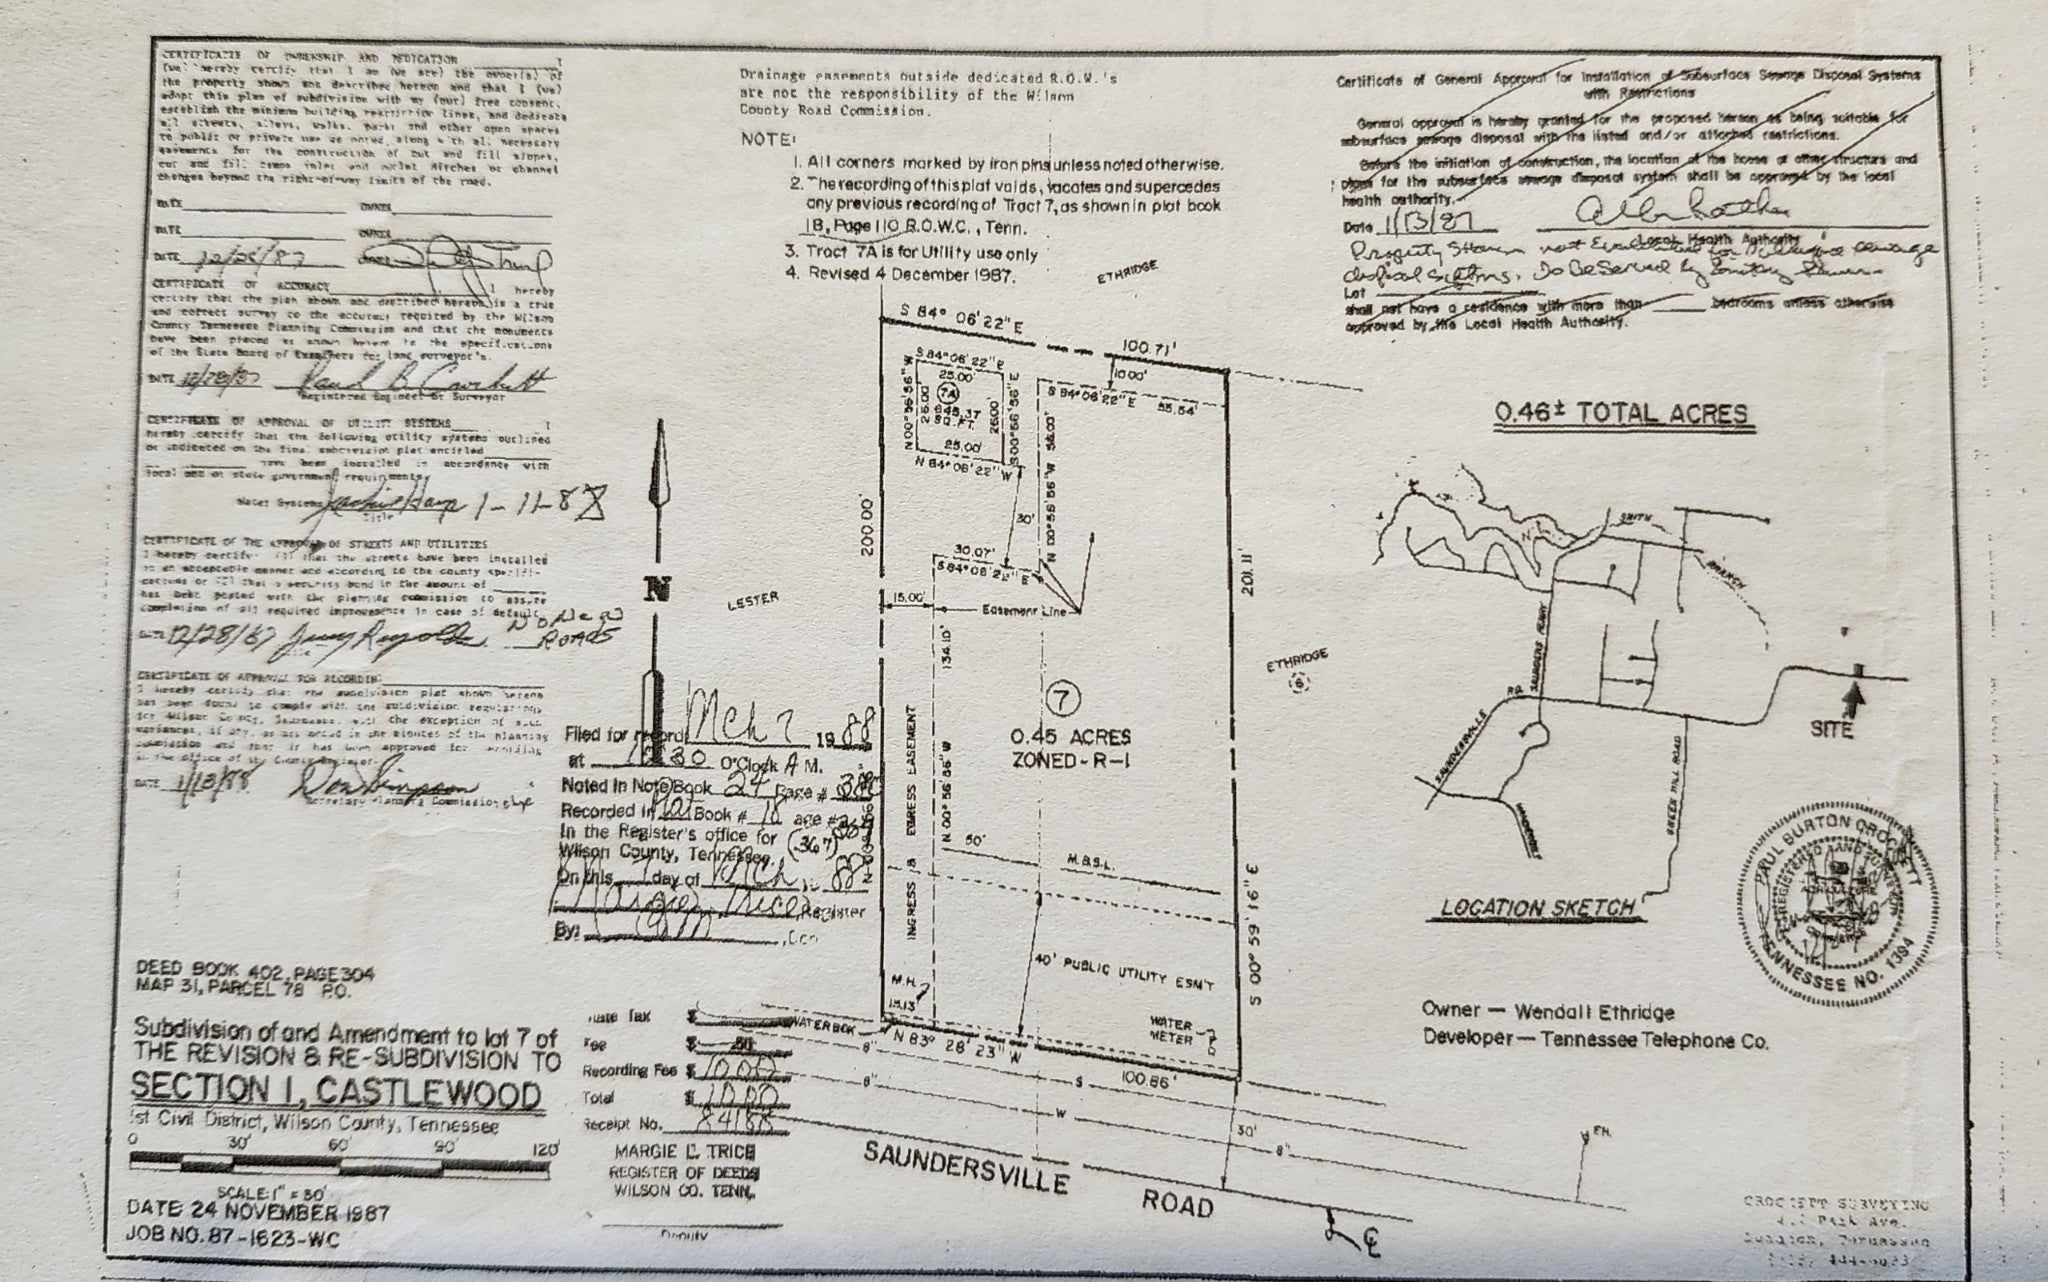 CERTIFICATE OF OWNERSHIP AND DEDICATION
I (we) hereby certify that I am (we are) the owner(s) of
the property shown and described hereon and that I (we)
adopt this plan of subdivision with my (our) free consent,
establish the minimum building restriction lines, and dedicate
all streets, alleys, walks, parks and other open spaces
to public or private use as noted, along with all necessary
easements for the construction of cut and fill slopes,
changes beyond the right-of-way limits of the road.
DATE OWNER
DATE OWNER
DATE 12/28/87
CERTIFICATE OF ACCURACY I hereby
certify that the plan shown and described hereon is a true
and correct survey to the accuracy required by the Wilson
County Tennessee Planning Commission and that the monuments
have been placed as shown hereon to the specifications
of the State Board of Examiners for land surveyor's.
DATE 12/28/87 Paul B Crockett
Registered Engineer or Surveyor
CERTIFICATE OF APPROVAL OF UTILITY SYSTEMS I
hereby certify that the following utility systems outlined
or indicated on the final subdivision plat entitled
have been installed in accordance with
local and or state government requirements
Water Systems 1-11-88
Title
CERTIFICATE OF THE APPROVAL OF STREETS AND UTILITIES
I hereby certify: (1) that the streets have been installed
in an acceptable manner and according to the county specifi-
cations or (2) that a security bond in the amount of
has been posted with the planning commission to assure
completion of all required improvements in case of default.
No New
DATE 12/28/87 Jerry Reynolds ROADS
CERTIFICATE OF APPROVAL FOR RECORDING
I hereby certify that the subdivision plat shown hereon
has been found to comply with the subdivision regulations
for Wilson County, Tennessee, with the exception of such
variances, if any, as are noted in the minutes of the planning
commission and that it has been approved for recording
in the office of the County Register.
DATE 1/13/88 Don Simpson
Secretary Planning Commission
DEED BOOK 402, PAGE 304
MAP 31, PARCEL 78 P.O.
Subdivision of and Amendment to lot 7 of
THE REVISION & RE-SUBDIVISION TO
SECTION I, CASTLEWOOD
1st Civil District, Wilson County, Tennessee
0 30' 60' 90' 120'
SCALE: 1" = 30'
DATE: 24 NOVEMBER 1987
JOB NO. 87-1623-WC
Drainage easements outside dedicated R.O.W.'s
are not the responsibility of the Wilson
County Road Commission.
NOTE:
1. All corners marked by iron pins unless noted otherwise.
2. The recording of this plat voids, vacates and supercedes
any previous recording of Tract 7, as shown in plat book
18, Page 110 R.O.W.C., Tenn.
3. Tract 7A is for Utility use only
4. Revised 4 December 1987.
ETHRIDGE
S 84° 06' 22" E
100.71'
10.00'
S 84° 06' 22" E
25.00'
7A
645.37
SQ. FT.
N 00° 56' 56" W
26.00'
26.00'
S 00° 56' 56" E
25.00'
N 84° 06' 22" W
S 84° 06' 22" E 55.54'
N 00° 56' 56" W 56.00'
30'
30.07'
S 84° 06' 22" E
15.00'
Easement Line
200.00'
201.11'
134.10'
N
LESTER
ETHRIDGE
6
7
0.45 ACRES
ZONED-R-1
INGRESS & EGRESS EASEMENT
N 00° 56' 56" W
50'
M.B.S.L.
40' PUBLIC UTILITY ESM'T
S 00° 59' 16" E
M.H.
15.13'
WATER BOX
N 83° 28' 23" W
100.86'
WATER
METER
8"
8"
S
W
8"
30'
F.H.
SAUNDERSVILLE ROAD
℄
Filed for record Mch 7 1988
at 10:30 O'Clock A M.
Noted In Note Book 24 Page #
Recorded in Plat Book # 18 age #
In the Register's office for (367)
Wilson County, Tennessee.
On this 7 day of Mch 88
Register
By:
State Tax $
Fee $ .50
Recording Fee $ 10.00
Total $ 10.00
Receipt No. 84188
MARGIE L. TRICE
REGISTER OF DEEDS
WILSON CO. TENN.
Deputy
Certificate of General Approval for Installation of Subsurface Sewage Disposal Systems
with Restrictions
General approval is hereby granted for the proposed hereon as being suitable for
subsurface sewage disposal with the listed and/or attached restrictions.
Before the initiation of construction, the location of the house or other structure and
plans for the subsurface sewage disposal system shall be approved by the local
health authority.
Date 1/13/87
Local Health Authority
Property Shown not Evaluated for sewage
disposal systems. To Be Served by Sanitary Sewer
Lot
shall not have a residence with more than bedrooms unless otherwise
approved by the Local Health Authority.
0.46± TOTAL ACRES
SMITH
BRANCH
SAUNDERS FERRY
RD.
SAUNDERSVILLE
GREEN HILL ROAD
SITE
LOCATION SKETCH
PAUL BURTON CROCKETT
REGISTERED LAND SURVEYOR
AGRICULTURE
COMMERCE
TENNESSEE NO. 1394
Owner — Wendall Ethridge
Developer — Tennessee Telephone Co.
CROCKETT SURVEYING
Park Ave.
Lebanon, Tennessee